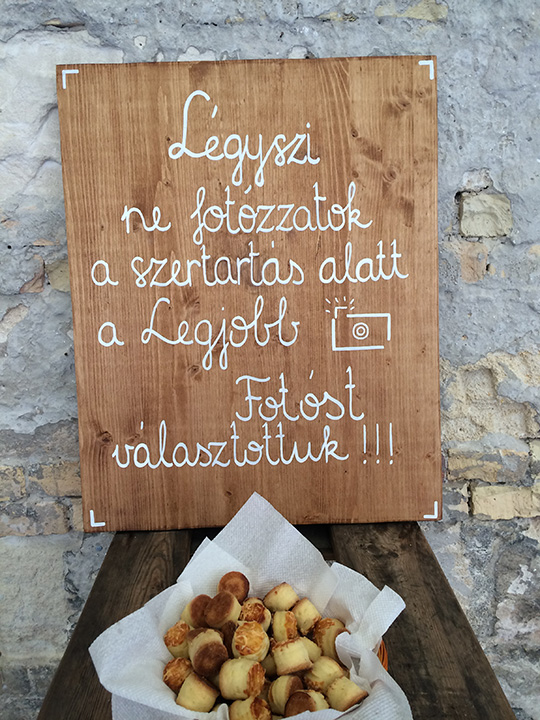 Légyszi
ne fotózzatok
a szertartás alatt
a Legjobb
Fotóst
választottuk !!!